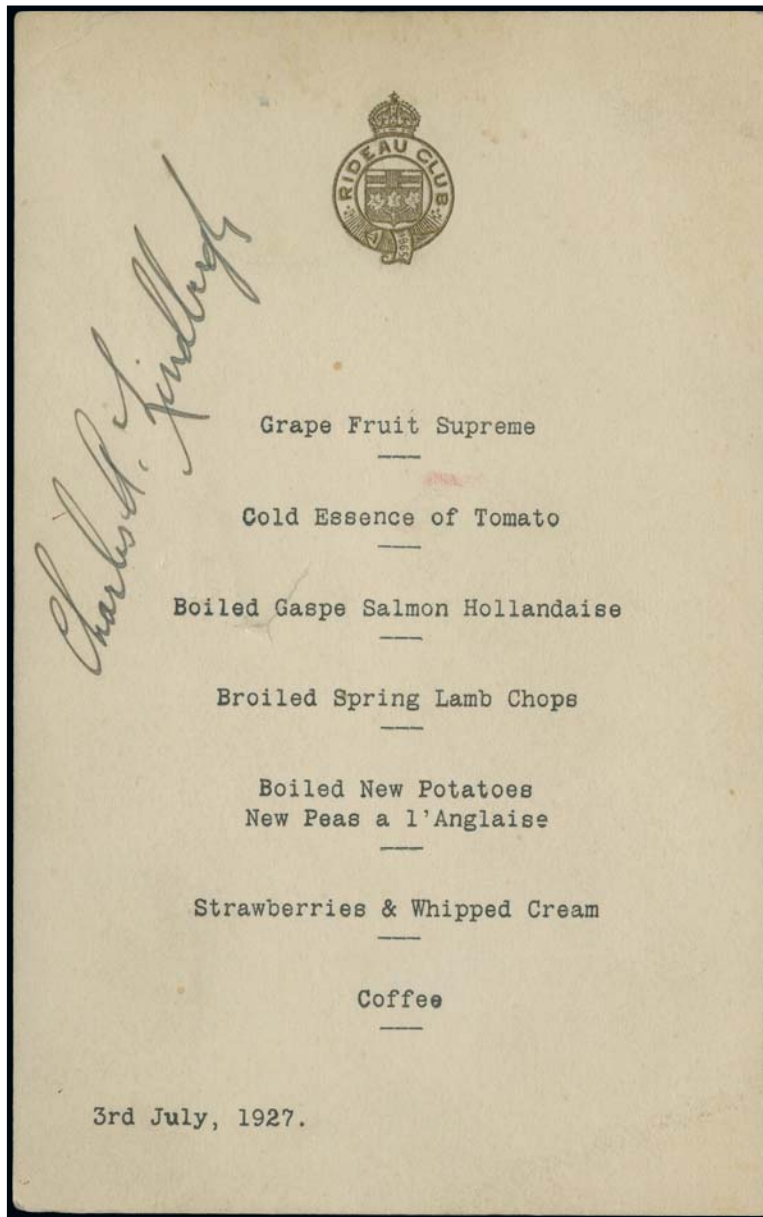 RIDEAU CLUB
1865
Charles A. Lindbergh
Grape Fruit Supreme
Cold Essence of Tomato
Boiled Gaspe Salmon Hollandaise
Broiled Spring Lamb Chops
Boiled New Potatoes
New Peas a l'Anglaise
Strawberries & Whipped Cream
Coffee
3rd July, 1927.